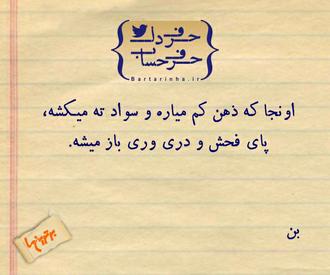 حرف دل
حرف حساب
Bartarinha.ir
اونجا که ذهن کم میاره و سواد ته میکشه،
پای فحش و دری وری باز میشه.
بن
برترینها